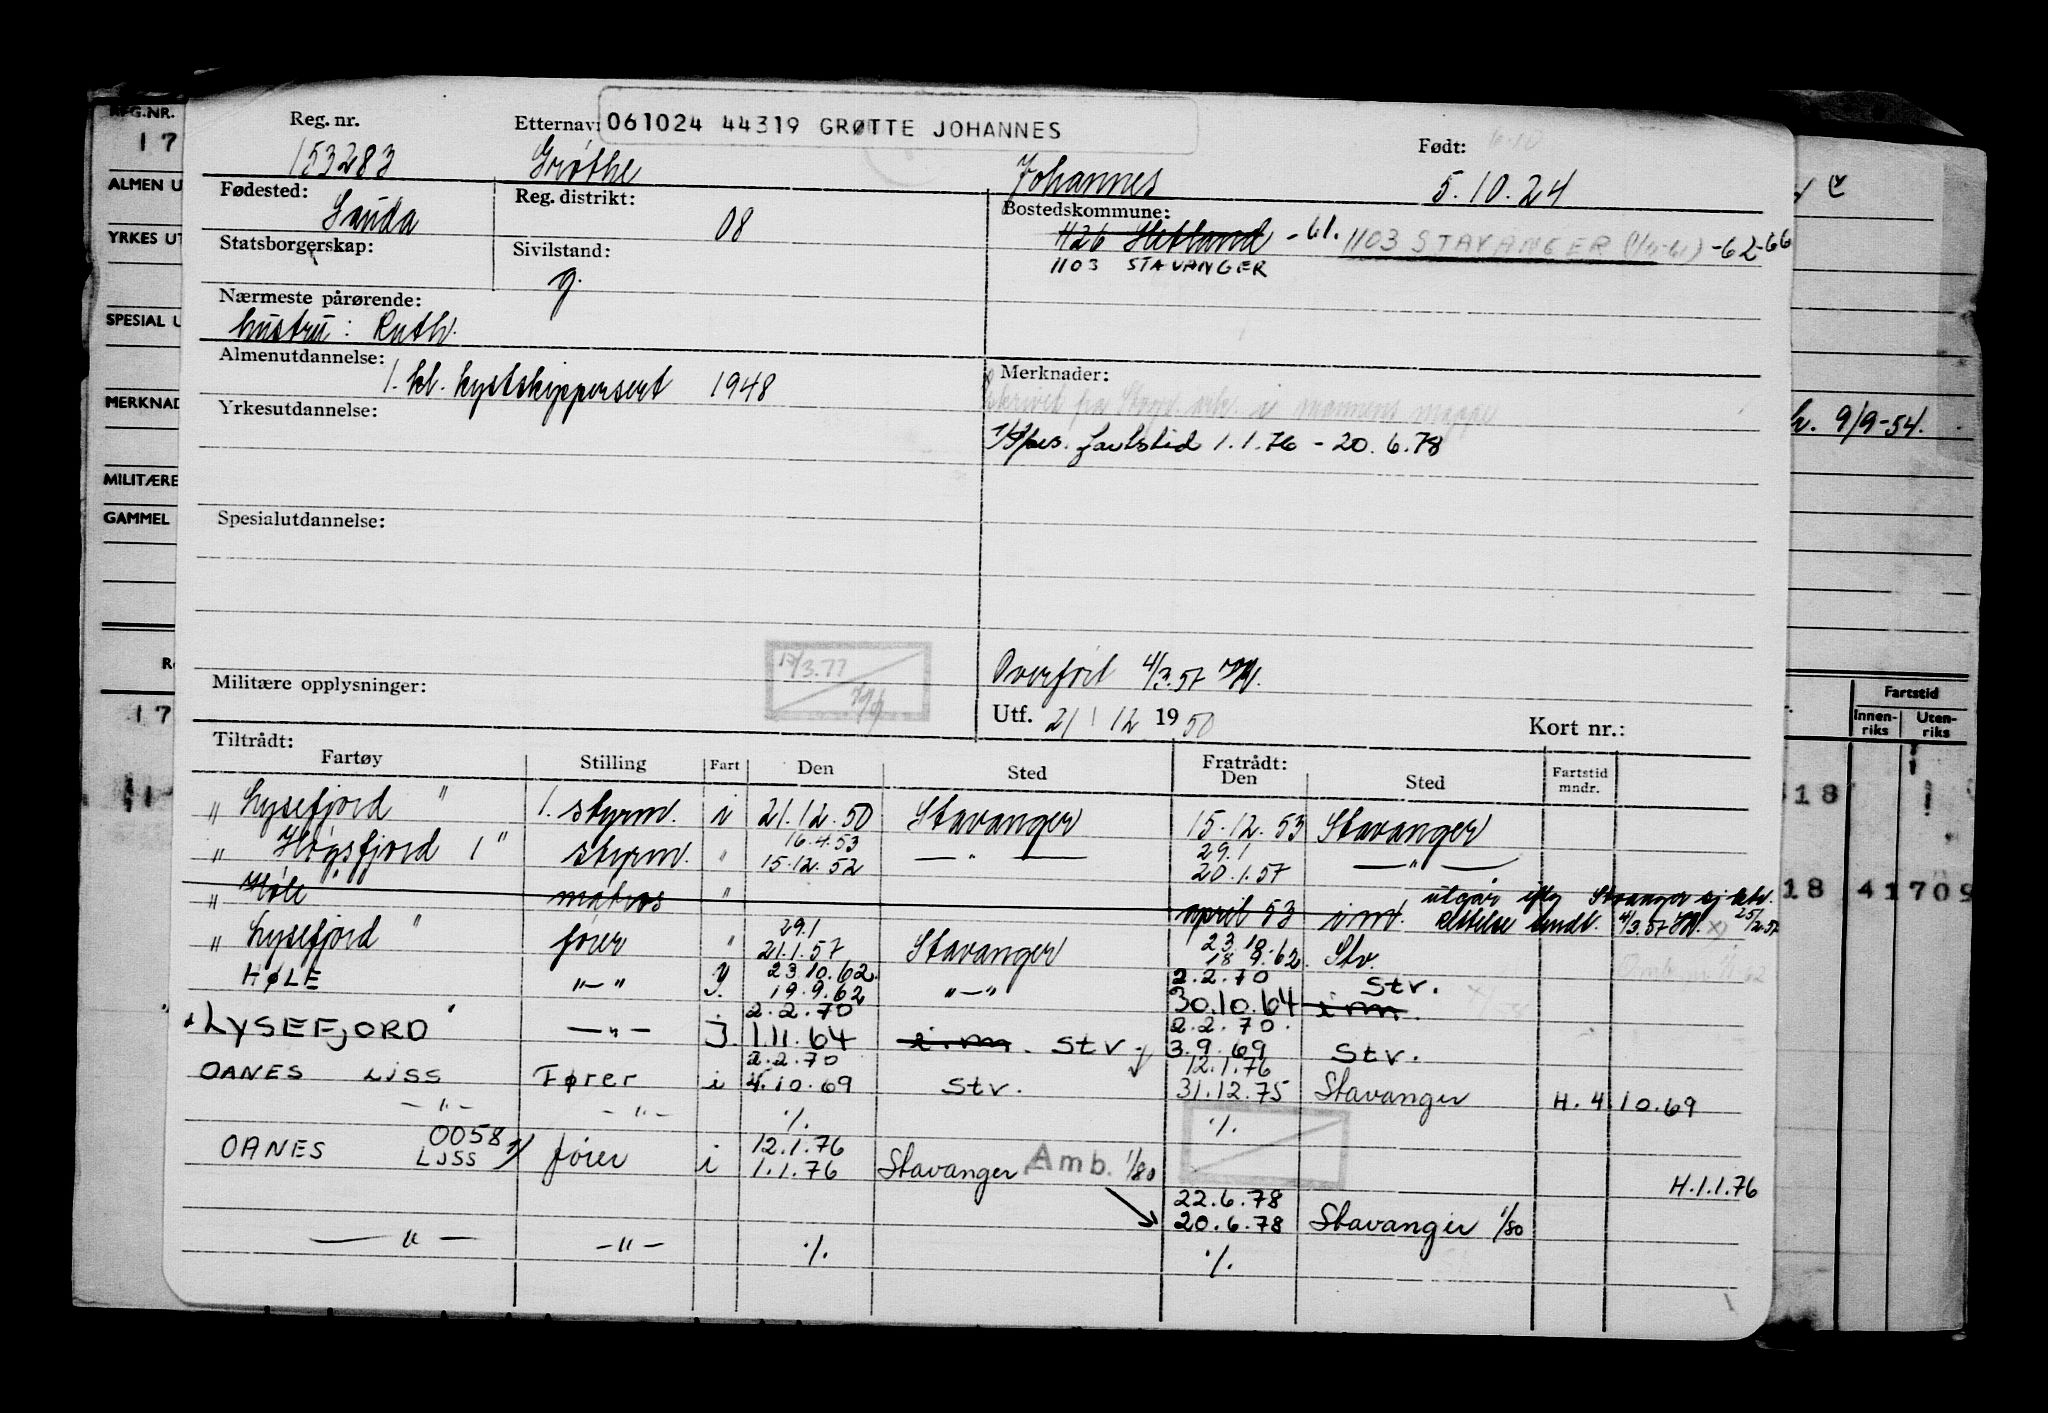 REG.NR.
17
ALMEN U
YRKES UT
SPESIAL U
MERKNAD
MILITÆRE
GAMMEL
R
17
Reg. nr. 153283
Etternav: 061024 44319 GRØTTE JOHANNES
Grøthe Johannes
Født: 5.10.24
6.10
Fødested: Sauda
Reg. distrikt: 08
Bostedskommune: 1126 Hetland -61. 1103 STAVANGER -62-66
1103 STAVANGER
Statsborgerskap:
Sivilstand: g.
Nærmeste pårørende:
hustru: Ruth.
Almenutdannelse: 1. kl. kystskippersert 1948
Merknader:
Yrkesutdannelse:
fartstid 1.1.76 - 20.6.78
h. 9/9-54.
Spesialutdannelse:
17/3.77
Overført 4/3.57
Militære opplysninger:
Utf. 21/12 1950
Kort nr.:
Fartstid
Innenriks Utenriks
Tiltrådt: Fratrådt:
Fartøy Stilling Fart Den Sted Den Sted Fartstid mndr.
" Lysefjord " 1. styrm. i 21.12.50 Stavanger 15.12.53 Stavanger
18
16.4.53 29.1
" Høgsfjord 1" styrm. " 15.12.52 — " — 20.1.57 — " —
" Høle " matros " april 53 i.m. utgår Stavanger
4/3.57 25/2.57
18 41709
29.1 23.10.
" Lysefjord " fører " 21.1.57 Stavanger 18.9.62. Stv.
23.10.62. 2.2.70
HØLE "—" J. 19.9.62 "—" 30.10.64 i.m. Stv.
2.2.70 2.2.70.
" LYSEFJORD " —"— J. 1.11.64 i.m. Stv. 3.9.69 Stv.
2.2.70 12.1.76
OANES LJSS Fører i 4.10.69 Stv. 31.12.75 Stavanger H. 4.10.69
—"— —"— ./. ./.
0058 12.1.76
OANES LJSS fører i 1.1.76 Stavanger Amb. 1/80 H.1.1.76
22.6.78
20.6.78 Stavanger 1/80
— " — —"— ./. ./.